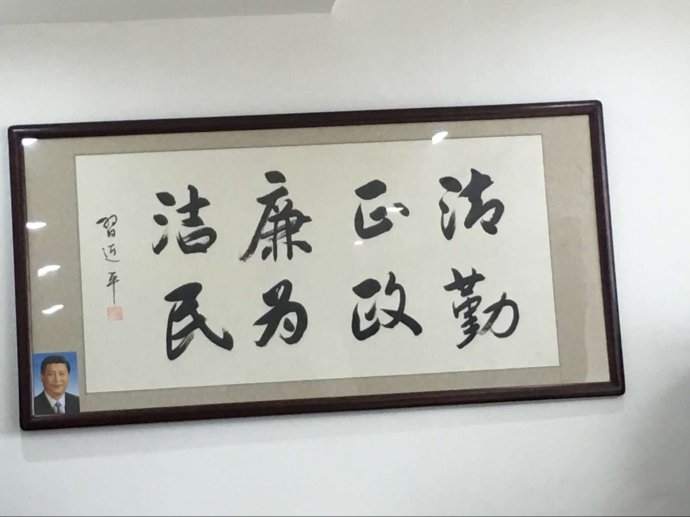 清正廉洁
勤政为民
習近平